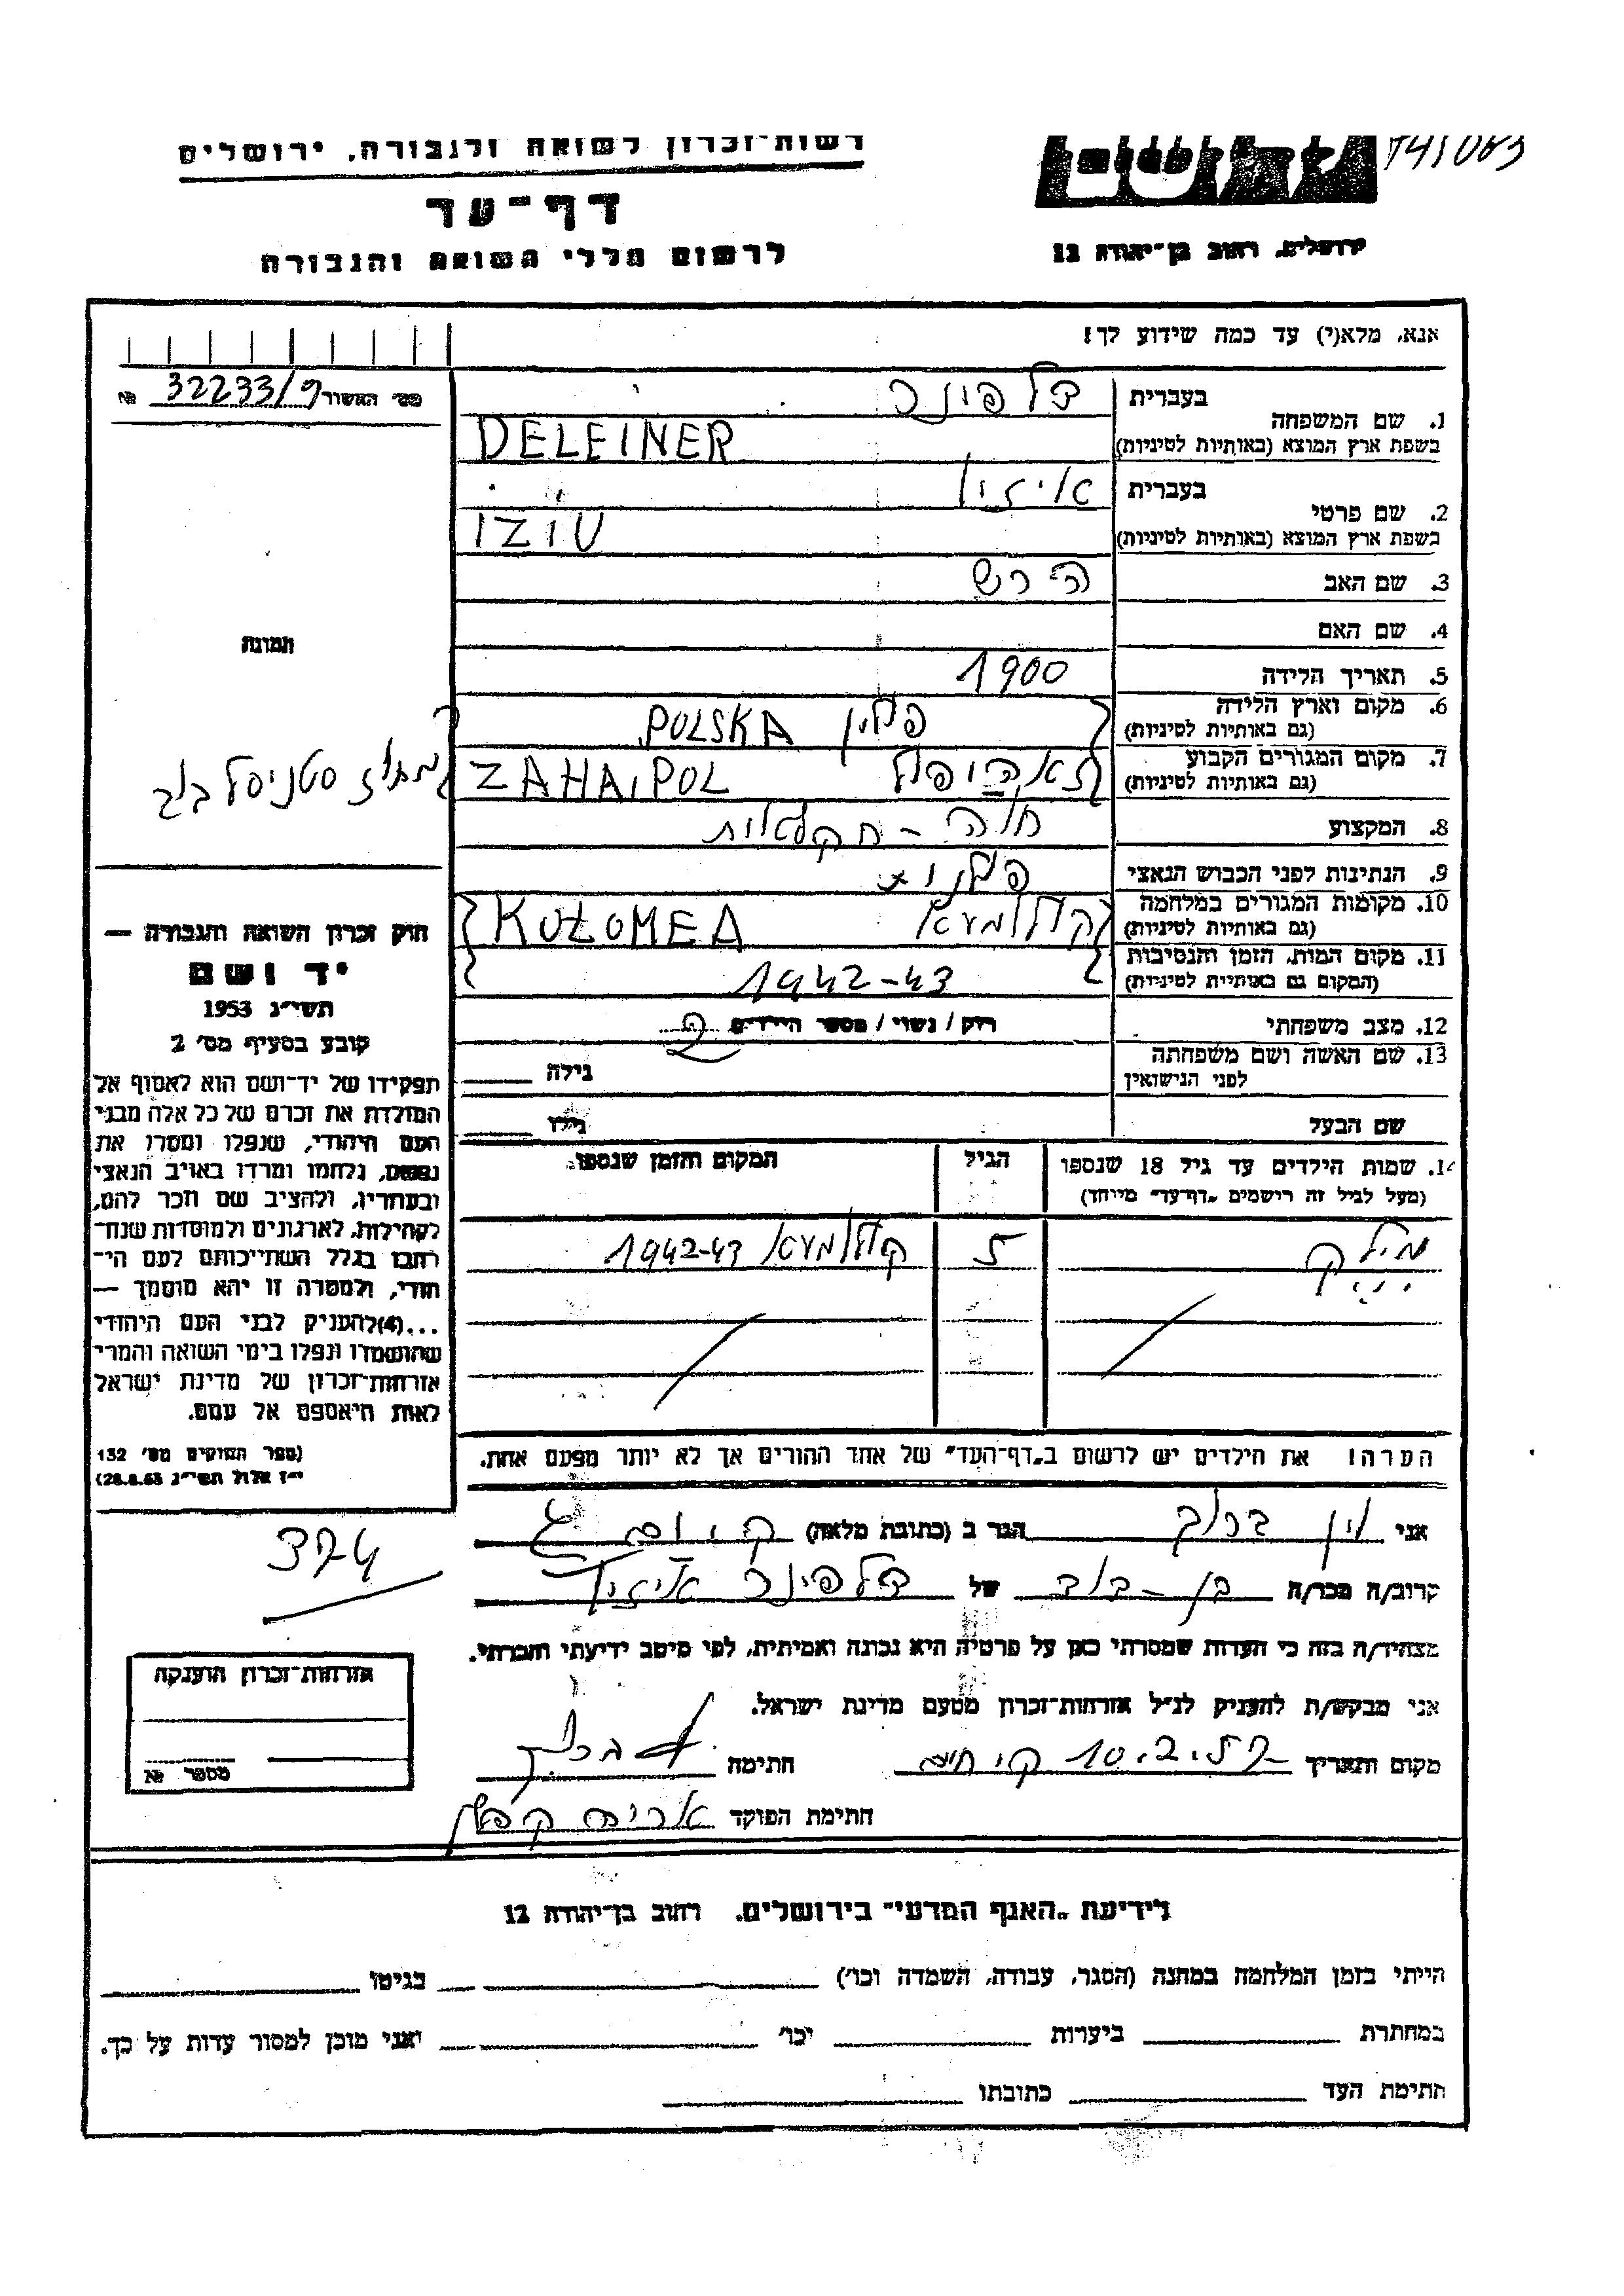 רשות-זכרון לשואה ולגבורה, ירושלים
דף-עד
לרשום חללי השואה והגבורה
ירושלים, רחוב בן-יהודה 12
אנא, מלא(י) עד כמה שידוע לך!
מס' האשור 32233/9 №
1. שם המשפחה
בעברית דלפינר
בשפת ארץ המוצא (באותיות לטיניות) DELFINER
2. שם פרטי
בעברית איזיו
בשפת ארץ המוצא (באותיות לטיניות) IZIU
3. שם האב הירש
4. שם האם
5. תאריך הלידה 1900
6. מקום וארץ הלידה
(גם באותיות לטיניות) פולין POLSKA
7. מקום המגורים הקבוע
(גם באותיות לטיניות) זאהיפול ZAHAJPOL
מחוז סטניסלבוב
תמונה
8. המקצוע חוה - חקלאות
9. הנתינות לפני הכבוש הנאצי פולנית
10. מקומות המגורים במלחמה
(גם באותיות לטיניות) קולומעא KOŁOMEA
11. מקום המות, הזמן והנסיבות
(המקום גם באותיות לטיניות) 1942-43
12. מצב משפחתי רווק / נשוי / מספר הילדים
13. שם האשה ושם משפחתה
לפני הנישואין גילה
שם הבעל גילו
14. שמות הילדים עד גיל 18 שנספו
(מעל לגיל זה רישמים "דף-עד" מיוחד)
הגיל
המקום והזמן שנספו
5 קולומעא 1942-43
הערה! את הילדים יש לרשום ב"דף-העד" של אחד ההורים אך לא יותר מפעם אחת.
חוק זכרון השואה והגבורה —
יד ושם
תשי"ג 1953
קובע בסעיף מס' 2
תפקידו של יד-ושם הוא לאסוף אל
המולדת את זכרם של כל אלה מבני
העם היהודי, שנפלו ומסרו את
נפשם, נלחמו ומרדו באויב הנאצי
ובעוזריו, ולהציב שם וזכר להם,
לקהילות, לארגונים ולמוסדות שנח-
רבו בגלל השתייכותם לעם הי-
הודי, ולמטרה זו יהא מוסמך —
...(4) להעניק לבני העם היהודי
שהושמדו ונפלו בימי השואה והמרי
אזרחות-זכרון של מדינת ישראל
לאות היאספם אל עמם.
(ספר החוקים מס' 132
י"ז אלול תשי"ג 28.8.53)
אני ברוך הגר ב (כתובת מלאה)
קרוב/ה מכר/ה בן-דוד של דלפינר איזיו
מצהיר/ה בזה כי העדות שמסרתי כאן על פרטיה היא נכונה ואמיתית, לפי מיטב ידיעתי והכרתי.
אני מבקש/ת להעניק לנ"ל אזרחות-זכרון מטעם מדינת ישראל.
מקום ותאריך 10.2.57 חתימה
חתימת הפוקד
אזרחות-זכרון הוענקה
מספר №
לידיעת "האגף המדעי" בירושלים, רחוב בן-יהודה 12
הייתי בזמן המלחמה במחנה (הסגר, עבודה, השמדה וכו') בגיטו
במחתרת ביערות וכו' ואני מוכן למסור עדות על כך.
חתימת העד כתובתו